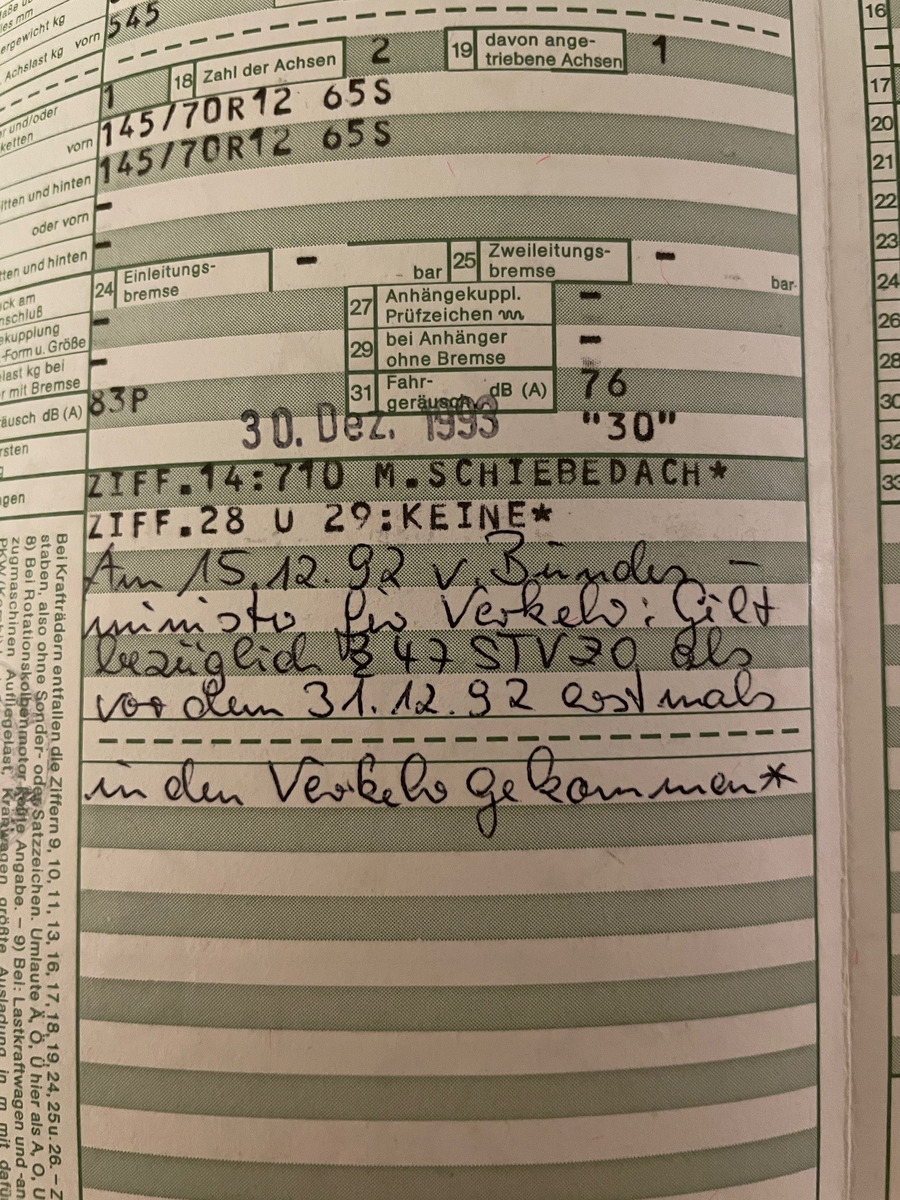 aße ü
les mm
ergewicht kg
545
Achslast kg vorn
1 18 Zahl der Achsen 2 19 davon ange-
triebene Achsen 1
r und/oder
ketten vorn 145/70R12 65S
itten und hinten 145/70R12 65S
oder vorn -
tten und hinten -
24 Einleitungs-
bremse - bar 25 Zweileitungs-
bremse - bar
ck am
nschluß - 27 Anhängekuppl.
Prüfzeichen -
ekupplung
-Form u. Größe - 29 bei Anhänger
ohne Bremse -
last kg bei
r mit Bremse
äusch dB (A) 83P 31 Fahr-
geräusch dB (A) 76
rsten 30. Dez. 1993 "30"
gen
ZIFF.14:710 M.SCHIEBEDACH*
ZIFF.28 U 29:KEINE*
Am 15.12.92 v. Bundes-
minister für Verkehr: Gilt
bezüglich § 47 STVZO als
vor dem 31.12.92 erstmals
in den Verkehr gekommen*
Bei Krafträdern entfallen die Ziffern 9, 10, 11, 13, 16, 17, 18, 19, 24, 25 u. 26. – Z
staben, also ohne Sonder- oder Satzzeichen. Umlaute Ä, Ö, Ü hier als A, O, U
8) Bei Rotationskolbenmotor keine Angabe. – 9) Bei: Lastkraftwagen und -an
zugmaschinen Aufliegelast, Kranwagen größte Ausladung in m mit dafü
16
17
20
21
22
23
24
26
28
30
32
33